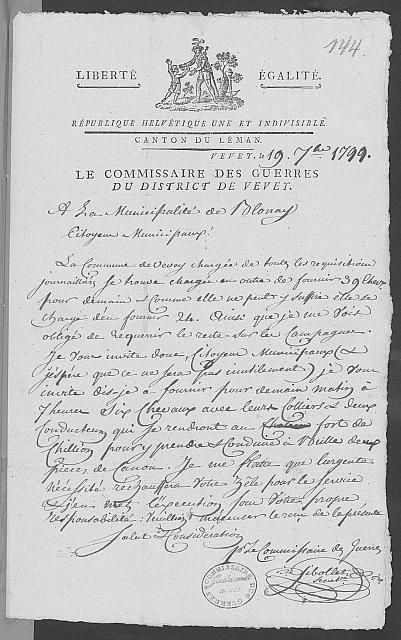 144.
LIBERTÉ ÉGALITÉ.
RÉPUBLIQUE HELVÉTIQUE UNE ET INDIVISIBLE.
CANTON DU LÉMAN.
VEVEY, le 19. 7bre 1799.
LE COMMISSAIRE DES GUERRES
DU DISTRICT DE VEVEY.
A La Municipalité de Blonay
Citoyens Municipaux!
La Commune de Vevey chargée de toutes les requisitions
journallières se trouve chargée en outre de fournir 39 Chevx
pour demain & comme elle ne peut y suffire elle se
charge d'en fournir 24. Ainsi que je me vois
obligé de requerir le reste sur la Campagne.
Je Vous invite donc Citoyens Municipaux (&
j'espère que ce ne sera pas inutilement) je Vous
invite dis-je à fournir pour demain matin à
7 heures Six Chevaux avec leurs Colliers & deux
Conducteurs qui se rendront au fort de
Chillion pour y prendre & conduire à Ville deux
pièces de Canon. Je me flatte que l'urgente
Nécessité rechauffera Votre Zèle pour le service
& j'en met l'execution sous Votre propre
responsabilité. Veuillez m'accuser le reçu de la présente
Salut & Considération
pr Le Commissaire des Guerres
Secret.
COMMISSAIRE DES GUERRES